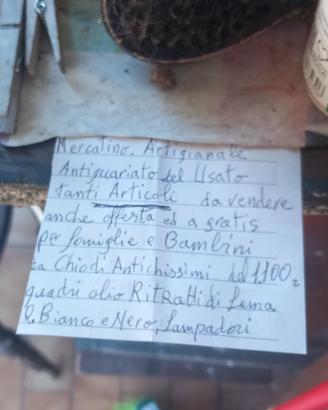 Mercatino. Artigianale
Antiquariato del Usato
tanti Articoli da vendere
anche offerta ed a gratis
per famiglie e Bambini
da Chiodi Antichissimi dal 1100,
quadri olio Ritratti di
e Bianco e Nero, Lampadari